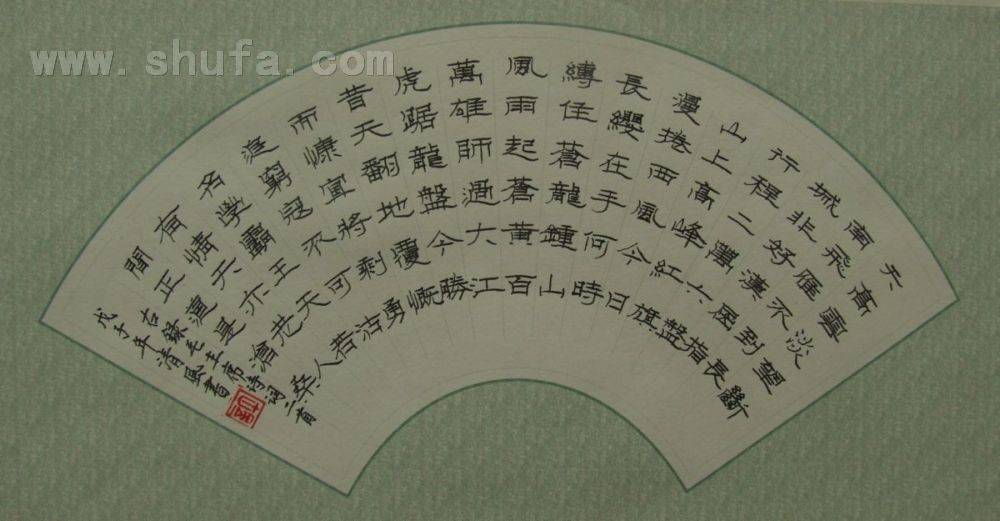 www.shufa.com
天高雲淡望斷
南飛雁不到長
城非好漢屈指
行程二萬六盤
山上高峰紅旗
漫捲西風今日
長纓在手何時
縛住蒼龍鍾山
風雨起蒼黃百
萬雄師過大江
虎踞龍盤今勝
昔天翻地覆慨
而慷宜將剩勇
追窮寇不可沽
名學霸王天若
有情天亦老人
間正道是滄桑
右錄毛主席詩詞二首
戊子年清書